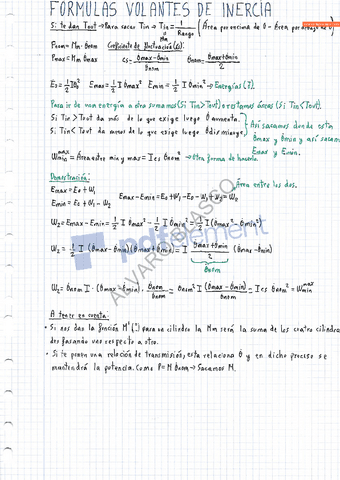 FÓRMULAS VOLANTES DE INERCIA
Si te dan Tout → Para sacar Tin → Tin = 1/Range (Área por encima de 0 - Área por debajo de 0)
Mm
Pnom = Mm · θnom Coeficiente de fluctuación (Cs):
Pmax = Mm θmax Cs = θmax - θmin / θnom θnom = θmax + θmin / 2
E0 = 1/2 I θ0² Emax = 1/2 I θmax² Emin = 1/2 I θmin² → Energías (J).
Para ir de una energía a otra sumas (Si Tin > Tout) o restamos áreas (Si Tin < Tout).
Si Tin > Tout da más de lo que exige luego θ aumenta.
Si Tin < Tout da menos de lo que exige luego θ disminuye.
Así sacamos donde están
θmax y θmin y así sacan
Emax y Emin.
Wmin^max = Área entre min y max = I Cs θnom² → Otra forma de hacerlo.
Demostración:
Área entre los dos.
Emax = E0 + W1
Emin = E0 + W1 - W2
Emax - Emin = E0 + W1 - E0 - W1 + W2 = W2
W2 = Emax - Emin = 1/2 I θmax² - 1/2 I θmin² = 1/2 I (θmax² - θmin²)
W2 = 1/2 I (θmax - θmin)(θmax + θmin) = I θmax + θmin / 2 (θmax - θmin)
θnom
W2 = θnom I · (θmax - θmin) · θnom/θnom = θnom² I (θmax - θmin)/θnom = I Cs θnom² = Wmin^max
A tener en cuenta:
• Si nos dan la función para un cilindro la Mm será la suma de los cuatro cilindros
desfasando uno respecto a otro.
• Si te ponen una relación de transmisión, esta relaciona θ y en dicho proceso se
mantendrá la potencia. Como P = M θnom → Sacamos M.
pdfelement
ALVARO BLASCO